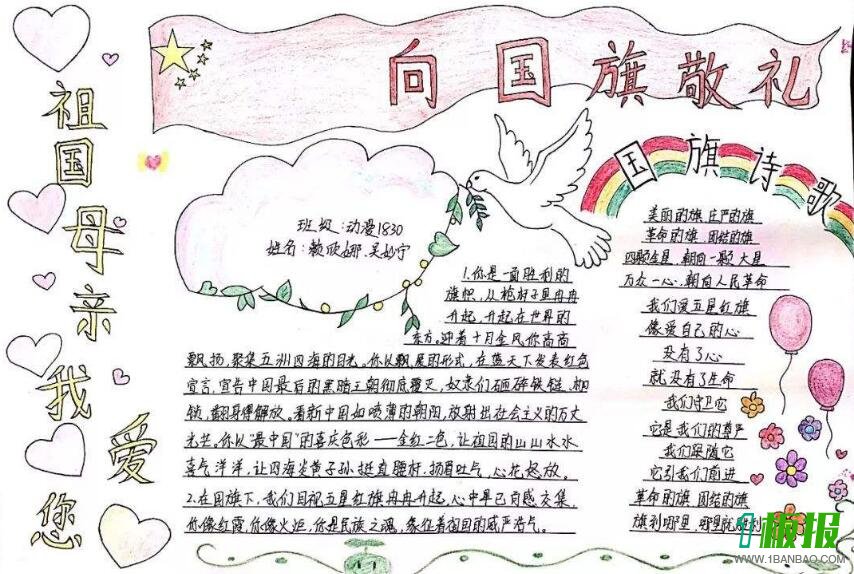 向国旗敬礼
祖国母亲我爱您
班级:动漫1830
姓名:赖欣娜.吴妙宁
1.你是一面胜利的
旗帜,从枪杆子里冉冉
升起,升起在世界的
东方。迎着十月金风你高高
飘扬,聚集五洲四海的目光。你以飘展的形式,在蓝天下发表红色
宣言,宣告中国最后的黑暗王朝彻底覆灭,奴隶们砸碎铁链、枷
锁,翻身得解放。看新中国如喷薄的朝阳,放射出社会主义的万丈
光芒。你以"最中国"的喜庆色彩——金红二色,让祖国的山山水水
喜气洋洋,让四海炎黄子孙挺直腰杆,扬眉吐气,心花怒放。
2.在国旗下,我们目视五星红旗冉冉升起,心中早已百感交集,
你像红霞,你像火炬,你是民族之魂,象征着祖国的威严浩气。
国旗诗歌
美丽的旗、庄严的旗
革命的旗、团结的旗
四颗金星,朝向一颗大星
万众一心,朝向人民革命
我们爱五星红旗
像爱自己的心
没有了心
就没有了生命
我们守卫它
它是我们的尊严
我们跟随它
它引我们前进
革命的旗 团结的旗
旗到哪里,哪里就胜利
1板报
WWW.1BANBAO.COM